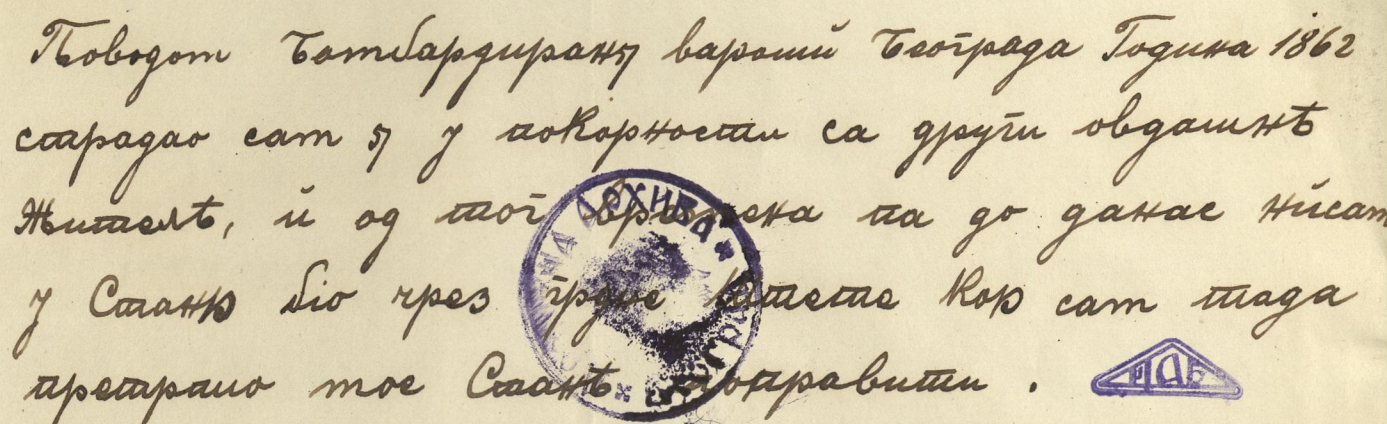 Поводом бомбардираня вароши Београда Година 1862
страдао сам я у покорности са други овдашнѣ
Жителѣ, и од тог времена па до данас нисам
у Станю біо чрез грдне штете кою сам тада
претрпио мое Станѣ поправити .
АРХИВА
ИАБ